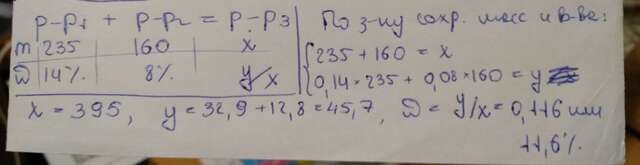 р-р₁ + р-р₂ = р-р₃
m 235 160 x
ω 14% 8% y/x
По з-ну сохр. масс и в-ва:
235 + 160 = x
0,14×235 + 0,08×160 = y
x = 395, y = 32,9 + 12,8 = 45,7, ω = y/x = 0,116 или
11,6%